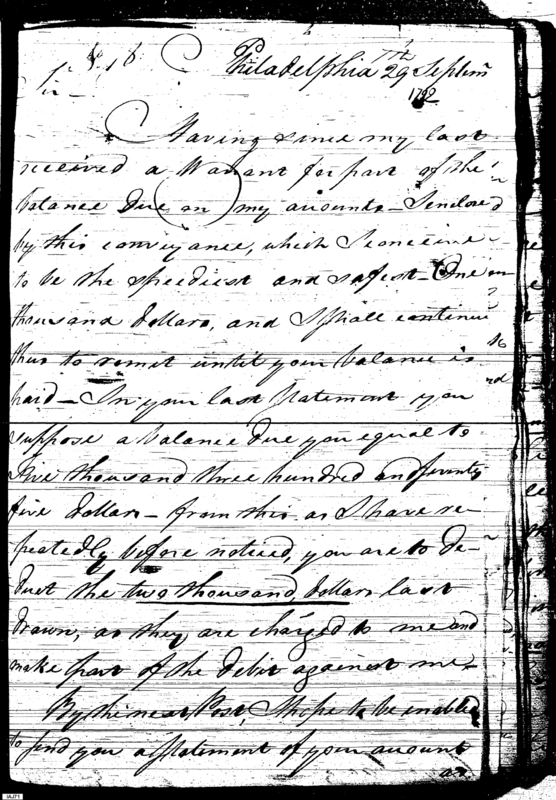 Philadelphia 29th Septemr
1792
Sir
Having since my last
received a Warrant for part of the
balance due on my accounts – I enclosed
by this conveyance, which I conceive
to be the speediest and safest – One
thousand dollars, and I shall continue
thus to remit until your balance is
paid – In your last statement you
suppose a balance due you equal to
five thousand three hundred and seventy
five dollars – from this as I have re-
peatedly before noticed, you are to de-
duct the two thousand dollars last
drawn, as they are charged to me and
make part of the debit against me –
By the next Post, I hope to be enabled
to send you a statement of your account
as
IAJ71